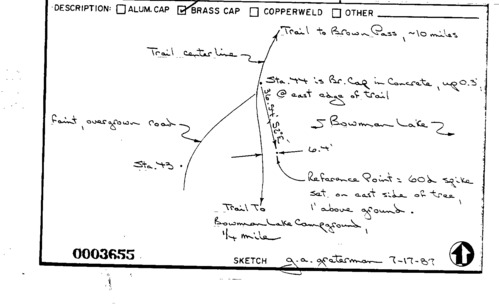 DESCRIPTION: ALUM. CAP BRASS CAP COPPERWELD OTHER
Trail to Brown Pass, ~10 miles
Trail centerline
Sta. 44 is Br. Cap in Concrete, up 0.3',
@ east edge of trail
faint, overgrown road
Bowman Lake
6.4'
Sta. 43
Reference Point = 60d spike
set on east side of tree,
1' above ground.
Trail To
Bowman Lake Campground,
1/4 mile
0003655
SKETCH g.a. graterman 7-17-87